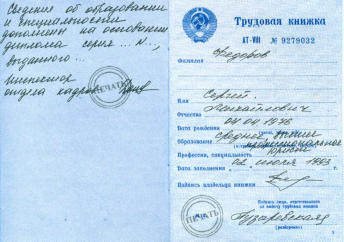 Сведения об образовании
и специальности
дополнены на основании
диплома серия ... №...,
выданного ...
Инспектор
отдела кадров
ПЕЧАТЬ
Трудовая книжка
АТ-VIII № 9279032
Федоров
Фамилия
Сергей
Имя
Михайлович
Отчество
04.04.1976
Дата рождения
среднее, высшее
Образование профессиональное
юрист
Профессия, специальность
02 июля 1993
Дата заполнения
Подпись владельца книжки
Подпись лица, ответственного
за выдачу трудовых книжек
ПЕЧАТЬ
Гузаревская
(разборчиво)